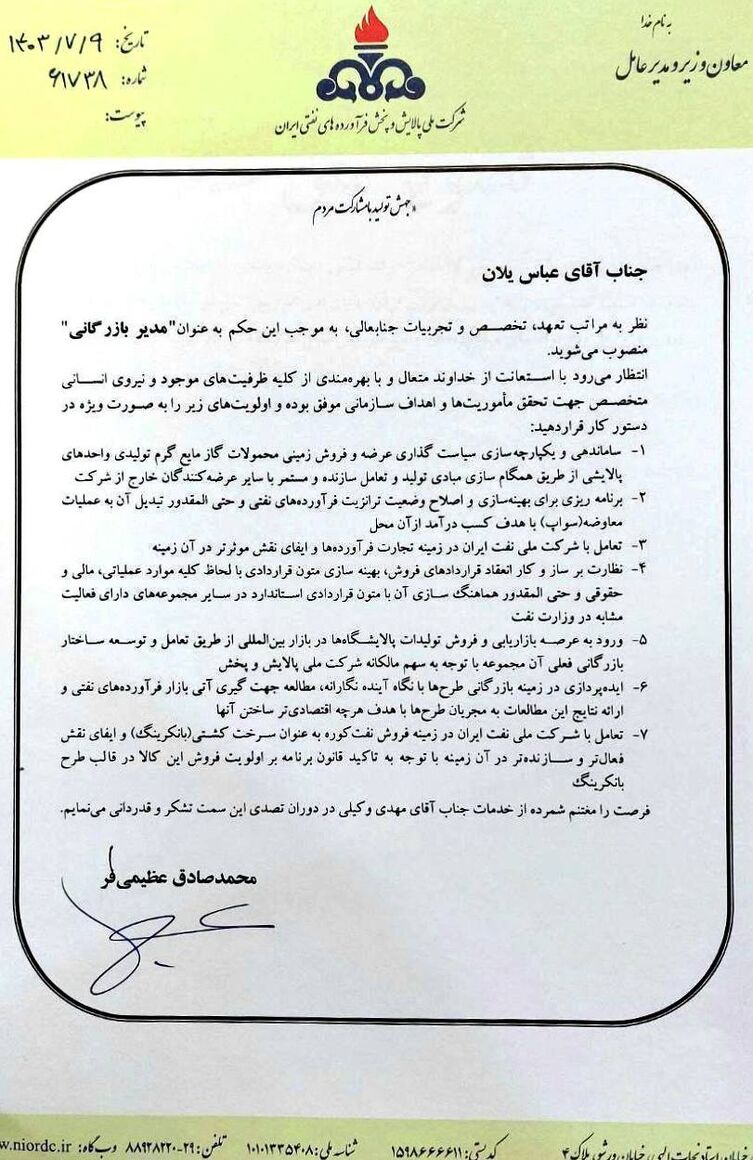 به نام خدا
معاون وزیر و مدیر عامل
شرکت ملی پالایش و پخش فرآورده های نفتی ایران
تاریخ: ۱۴۰۳/۷/۹
شماره: ۶۱۷۳۸
پیوست:
«جهش تولید با مشارکت مردم
جناب آقای عباس یلان
نظر به مراتب تعهد، تخصص و تجربیات جنابعالی، به موجب این حکم به عنوان"مدیر بازرگانی"
منصوب می‌شوید.
انتظار می‌رود با استعانت از خداوند متعال و با بهره‌مندی از کلیه ظرفیت‌های موجود و نیروی انسانی
متخصص جهت تحقق مأموریت‌ها و اهداف سازمانی موفق بوده و اولویت‌های زیر را به صورت ویژه در
دستور کار قراردهید:
۱- ساماندهی و یکپارچه‌سازی سیاست گذاری عرضه و فروش زمینی محمولات گاز مایع گرم تولیدی واحدهای
پالایشی از طریق همگام سازی مبادی تولید و تعامل سازنده و مستمر با سایر عرضه‌کنندگان خارج از شرکت
۲- برنامه ریزی برای بهینه‌سازی و اصلاح وضعیت ترانزیت فرآورده‌های نفتی و حتی المقدور تبدیل آن به عملیات
معاوضه(سواپ) با هدف کسب درآمد ازآن محل
۳- تعامل با شرکت ملی نفت ایران در زمینه تجارت فرآورده‌ها و ایفای نقش موثرتر در آن زمینه
۴- نظارت بر ساز و کار انعقاد قراردادهای فروش، بهینه سازی متون قراردادی با لحاظ کلیه موارد عملیاتی، مالی و
حقوقی و حتی المقدور هماهنگ سازی آن با متون قراردادی استاندارد در سایر مجموعه‌های دارای فعالیت
مشابه در وزارت نفت
۵- ورود به عرصه بازاریابی و فروش تولیدات پالایشگاه‌ها در بازار بین‌المللی از طریق تعامل و توسعه ساختار
بازرگانی فعلی آن مجموعه با توجه به سهم مالکانه شرکت ملی پالایش و پخش
۶- ایده‌پردازی در زمینه بازرگانی طرح‌ها با نگاه آینده نگارانه، مطالعه جهت گیری آتی بازار فرآورده‌های نفتی و
ارائه نتایج این مطالعات به مجریان طرح‌ها با هدف هرچه اقتصادی‌تر ساختن آنها
۷- تعامل با شرکت ملی نفت ایران در زمینه فروش نفت‌کوره به عنوان سرخت کشتی(بانکرینگ) و ایفای نقش
فعال‌تر و سازنده‌تر در آن زمینه با توجه به تاکید قانون برنامه بر اولویت فروش این کالا در قالب طرح
بانکرینگ
فرصت را مغتنم شمرده از خدمات جناب آقای مهدی وکیلی در دوران تصدی این سمت تشکر و قدردانی می‌نمایم.
محمدصادق عظیمی‌فر
خیابان استاد نجات الهی، خیابان ورشو، پلاک ۴ کدپستی: ۱۵۹۸۶۶۶۶۱۱ شناسه ملی: ۱۰۱۰۱۳۳۵۴۰۸ تلفن: ۲۹-۸۸۹۲۸۲۲۰ وب گاه: w.niordc.ir